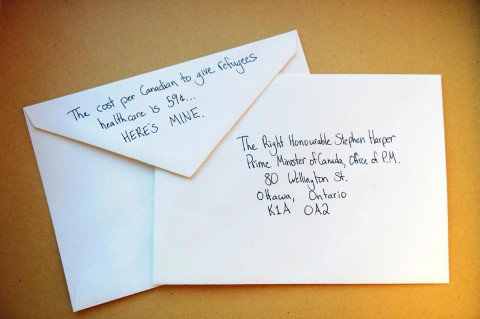 The cost per Canadian to give refugees
healthcare is 59¢...
HERE'S MINE.
The Right Honourable Stephen Harper
Prime Minister of Canada, Office of P.M.
80 Wellington St.
Ottawa, Ontario
K1A 0A2